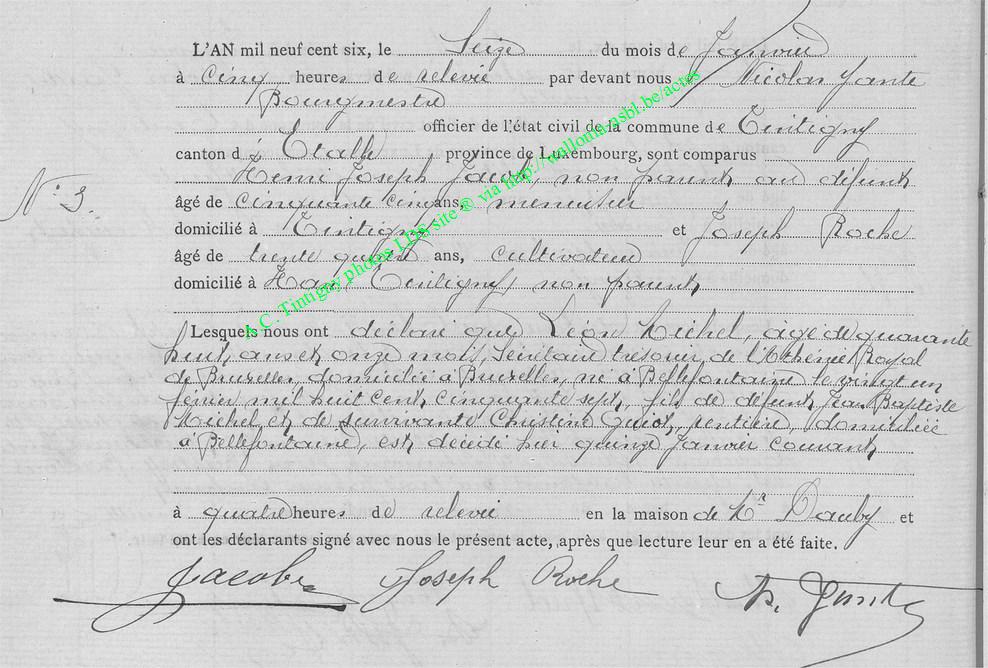 L'AN mil neuf cent six, le Seize du mois de Janvier
à cinq heures de relevée par devant nous Nicolas
Bourgmestre
officier de l'état civil de la commune de Tintigny
canton d'Etalle province de Luxembourg, sont comparus
N° 3.
Henri Joseph Jacob, non parent au défunt
âgé de cinquante cinq ans, menuisier
domicilié à Tintigny et Joseph Roche
âgé de trente ans, cultivateur
domicilié à Han, Tintigny, non parent,
Lesquels nous ont déclaré que Léon Michel, âgé de quarante
huit ans et onze mois, Secrétaire trésorier de l'Athénée Royal
de Bruxelles, domicilié à Bruxelles, né à Bellefontaine le vingt un
février mil huit cent cinquante sept, fils de défunt Jean Baptiste
Michel et de survivante Christine Guiot, rentière, domiciliée
à Bellefontaine, est décédé hier quinze Janvier courant
à quatre heures de relevée en la maison de Mr Dauby et
ont les déclarants signé avec nous le présent acte, après que lecture leur en a été faite.
Jacob Joseph Roche
A.C. Tintigny photos LDS site ® via http://wallonia-asbl.be/actes